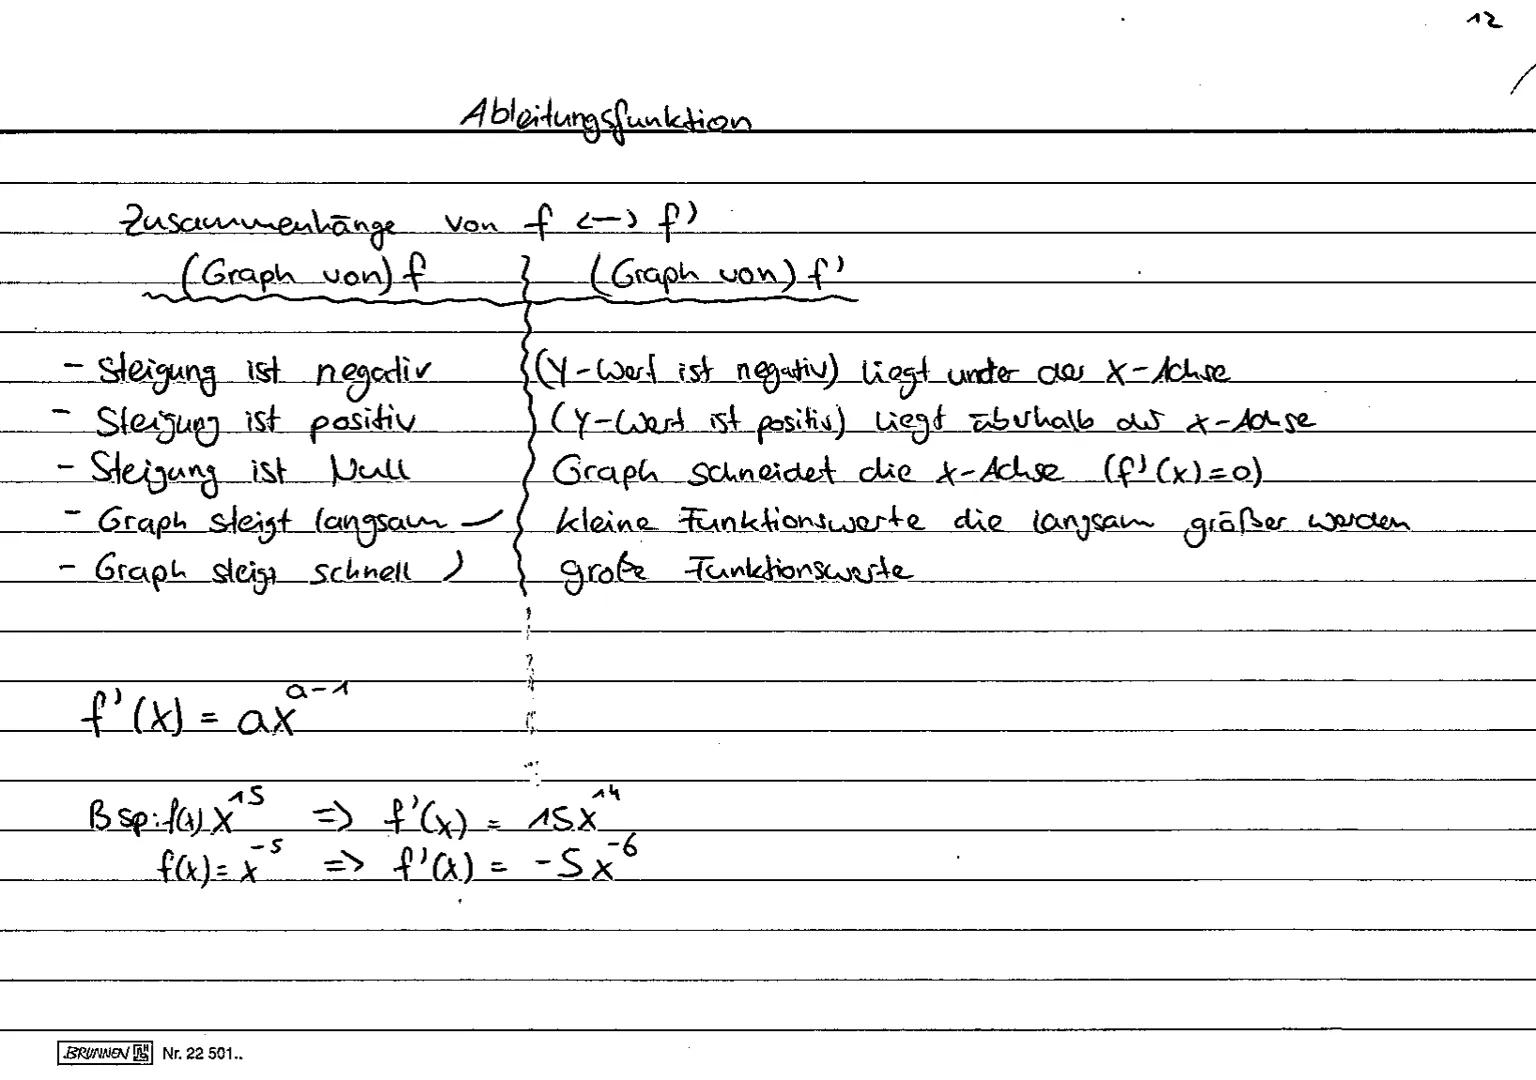 12
Ableitungsfunktion
Zusammenhänge von f <-> f'
(Graph von) f (Graph von) f'
- Steigung ist negativ (Y-Wert ist negativ) liegt unter der X-Achse
- Steigung ist positiv (Y-Wert ist positiv) liegt überhalb der X-Achse
- Steigung ist Null Graph schneidet die X-Achse (f'(x)=0)
- Graph steigt langsam kleine Funktionswerte die langsam größer werden
- Graph steigt schnell große Funktionswerte
f'(x) = ax^{a-1}
Bsp: f(x) x^{15} => f'(x) = 15x^{14}
f(x) = x^{-5} => f'(x) = -5x^{-6}
BRUNNEN Nr. 22 501..